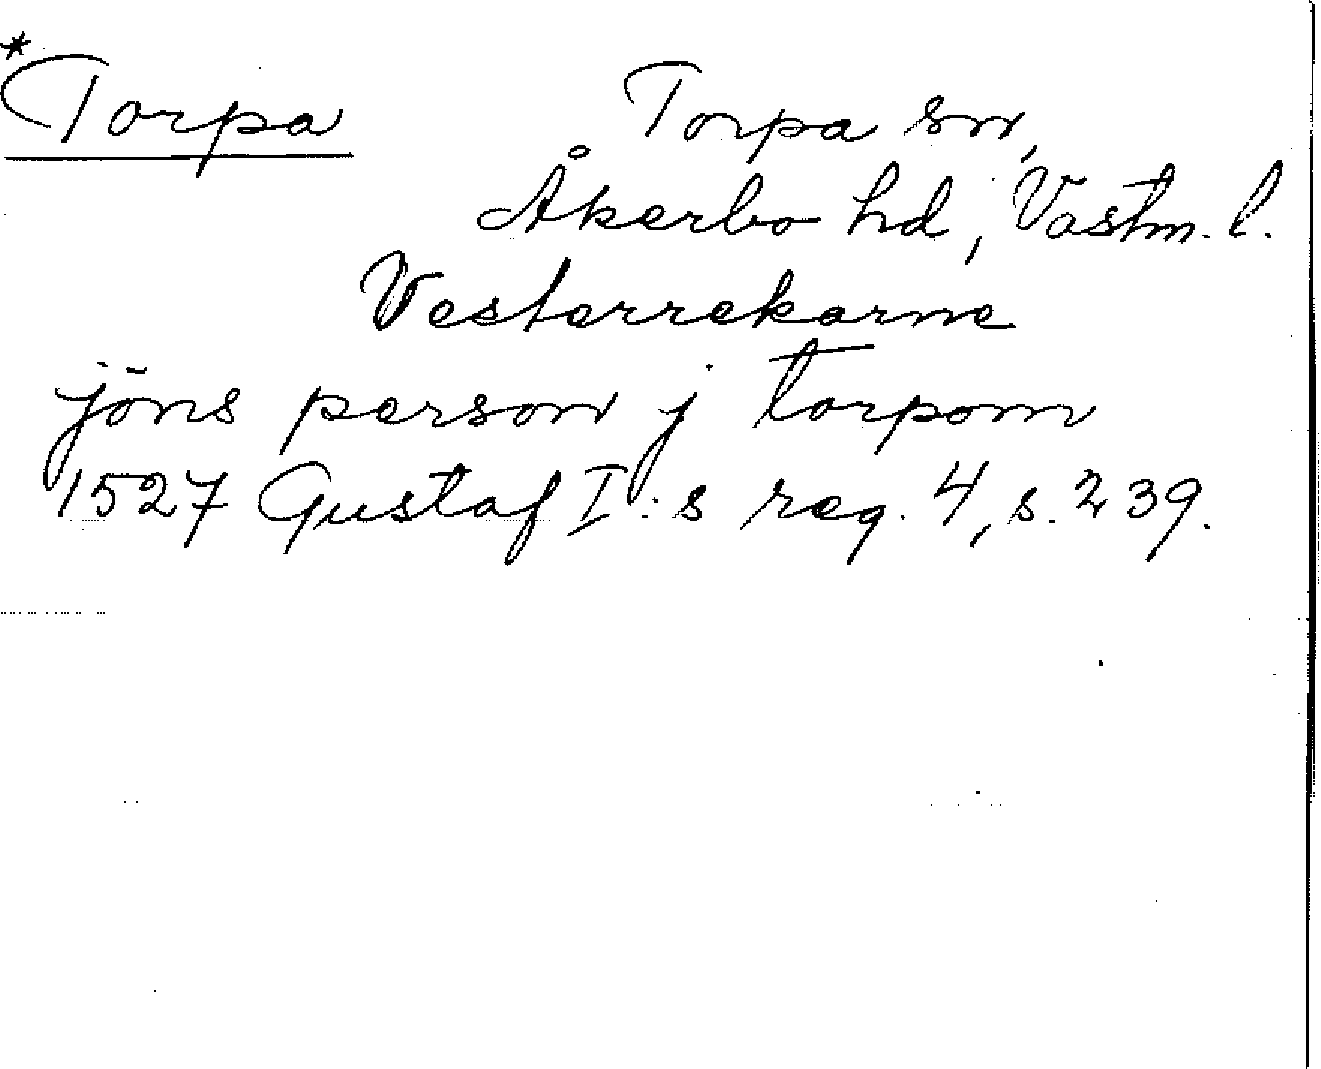 *Torpa Torpa sn,
Åkerbo hd, Västm. l.
Vesterrekarne
jöns person j torpom
1527 Gustaf I:s reg. 4, s. 239.